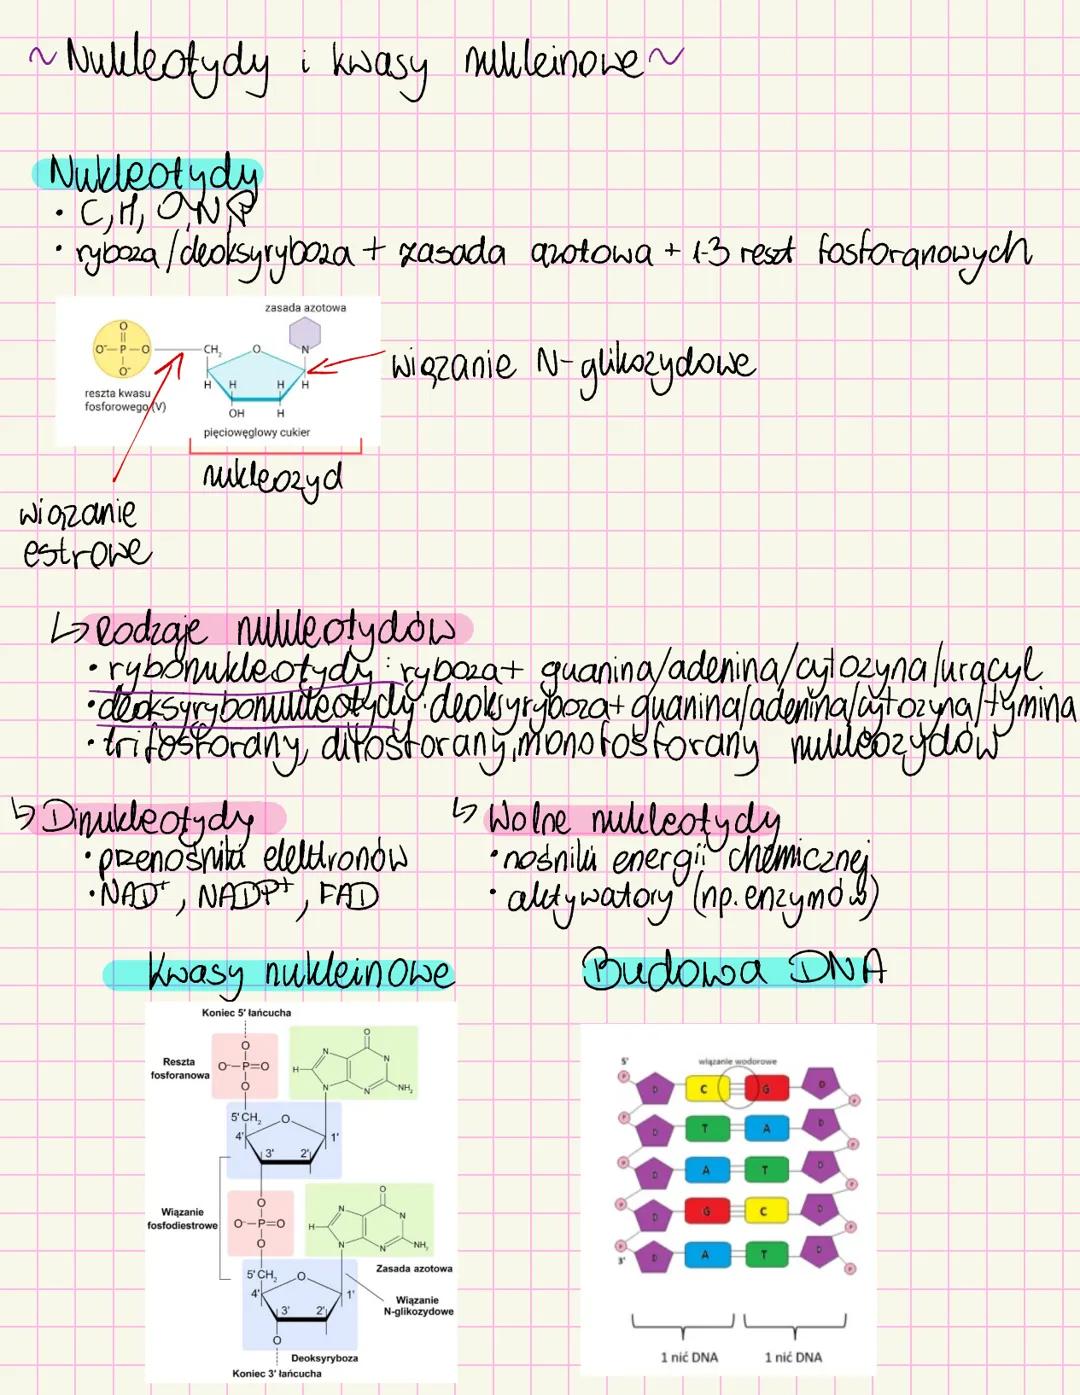 ~Nukleotydy i kwasy nukleinowe~
Nukleotydy
• C, H, O, N, P
• ryboza/deoksyryboza + zasada azotowa + 1-3 reszt fosforanowych
zasada azotowa
O
O⁻ P O CH₂ O N
O⁻
H H H H
reszta kwasu
fosforowego (V)
OH H
pięciowęglowy cukier
wiązanie N-glikozydowe
nukleozyd
wiązanie
estrowe
↳ Rodzaje nukleotydów
• rybonukleotydy: ryboza + guanina/adenina/cytozyna/uracyl
• deoksyrybonukleotydy: deoksyryboza + guanina/adenina/cytozyna/tymina
• trifosforany, difosforany, monofosforany nukleozydów
↳ Dinukleotydy
• przenośniki elektronów
• NAD⁺, NADP⁺, FAD
↳ Wolne nukleotydy
• nośniki energii chemicznej
• aktywatory (np. enzymów)
Kwasy nukleinowe
Koniec 5' łańcucha
Reszta
fosforanowa
O
O⁻—P=O
O
O
N N
H N N NH₂
5' CH₂ O
4' 1'
3' 2'
Wiązanie
fosfodiestrowe
O
O⁻—P=O
O
O
N N
H N N NH₂
Zasada azotowa
5' CH₂ O
4' 1'
3' 2'
Wiązanie
N-glikozydowe
O
Deoksyryboza
Koniec 3' łańcucha
Budowa DNA
5' wiązanie wodorowe
P D C G D P
P D T A D P
P D A T D P
P D G C D P
P D A T D P
3'
1 nić DNA 1 nić DNA